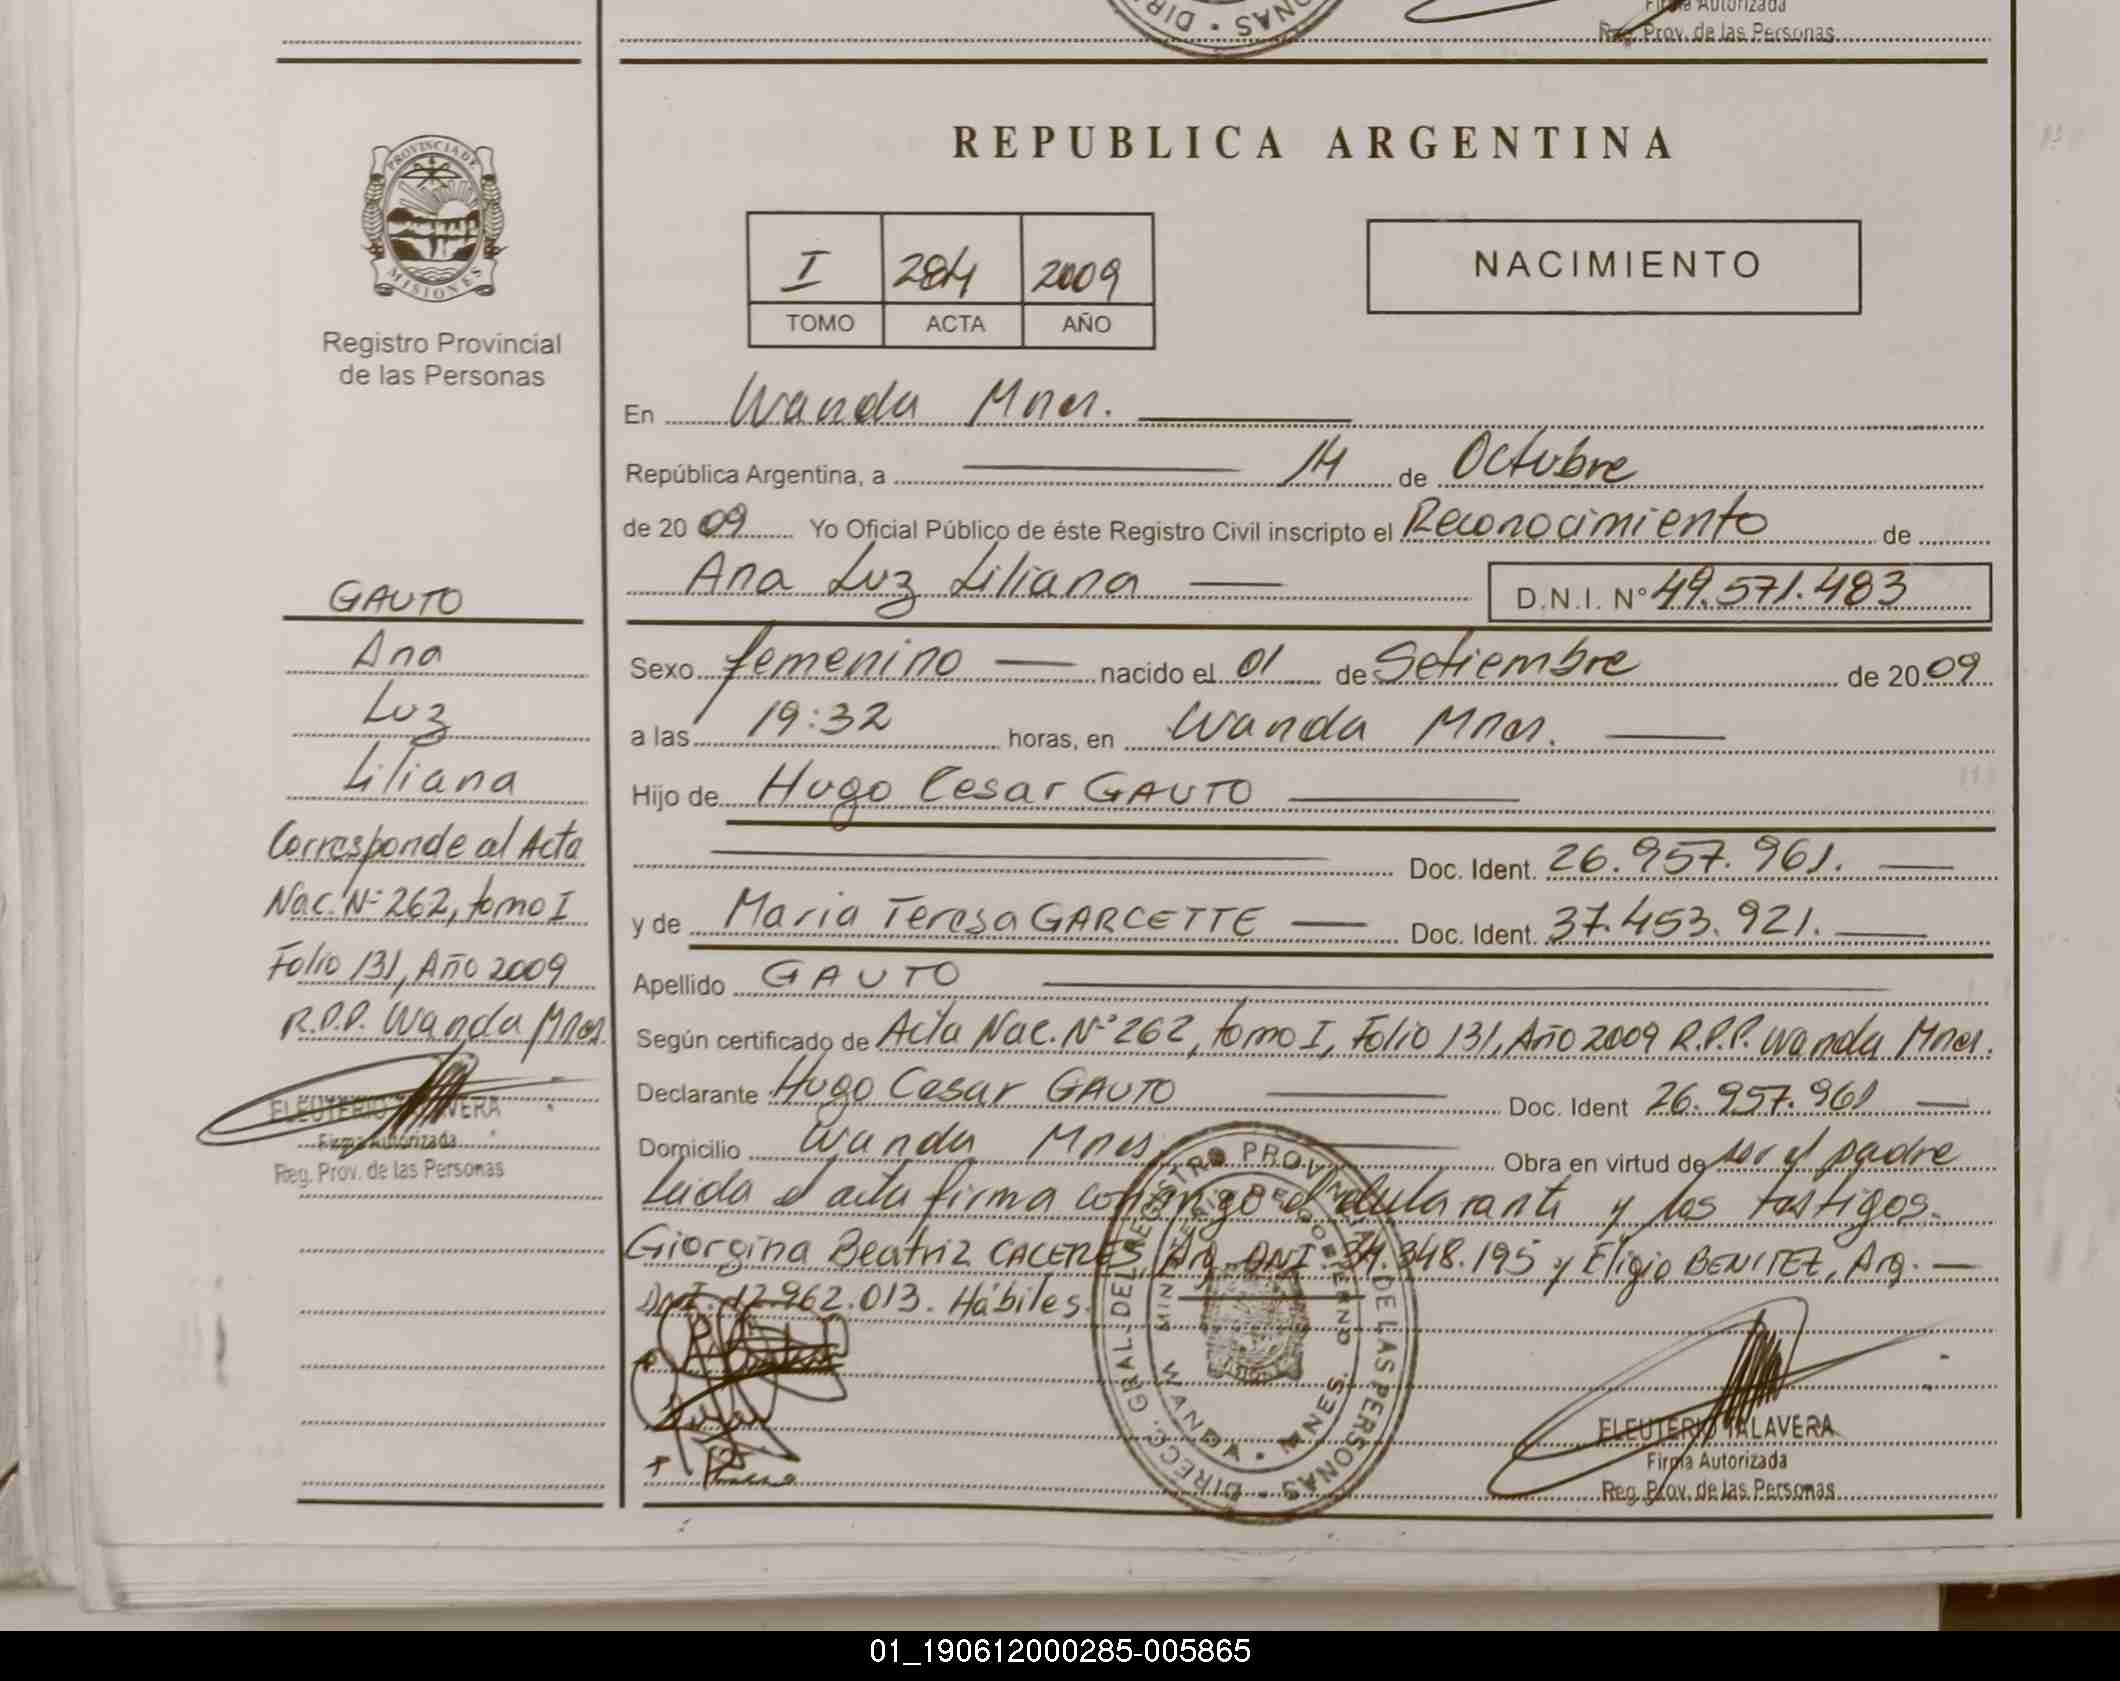 Firma Autorizada
Reg. Prov. de las Personas
PROVINCIA DE
MISIONES
Registro Provincial
de las Personas
GAUTO
Ana
Luz
Liliana
Corresponde al Acta
Nac. Nº 262, tomo I
Folio 131, Año 2009
R.P.P. Wanda Mnes.
ELEUTERIO TALAVERA
Firma Autorizada
Reg. Prov. de las Personas
REPUBLICA ARGENTINA
I 284 2009
TOMO ACTA AÑO
NACIMIENTO
En Wanda Mnes.
República Argentina, a 14 de Octubre
de 2009 Yo Oficial Público de éste Registro Civil inscripto el Reconocimiento de
Ana Luz Liliana D.N.I. Nº 49.571.483
Sexo femenino nacido el 01 de Setiembre de 2009
a las 19:32 horas, en Wanda Mnes.
Hijo de Hugo Cesar GAUTO
Doc. Ident. 26.957.961.
y de Maria Teresa GARCETTE Doc. Ident. 37.453.921.
Apellido GAUTO
Según certificado de Acta Nac. Nº 262, tomo I, Folio 131, Año 2009 R.P.P. Wanda Mnes.
Declarante Hugo Cesar GAUTO Doc. Ident 26.957.961
Domicilio Wanda Mnes. Obra en virtud de ser el padre
Leida el acta firma conmigo el declarante y los testigos.
Giorgina Beatriz CACERES, Arg. DNI. 34.348.195 y Eligio BENITEZ, Arg.
DNI. 12.962.013. Hábiles.
DIRECC. GRAL. DEL REGISTRO PROVINCIAL DE LAS PERSONAS
MINISTERIO DE GOBIERNO
WANDA • MNES.
ELEUTERIO TALAVERA
Firma Autorizada
Reg. Prov. de las Personas
01_190612000285-005865